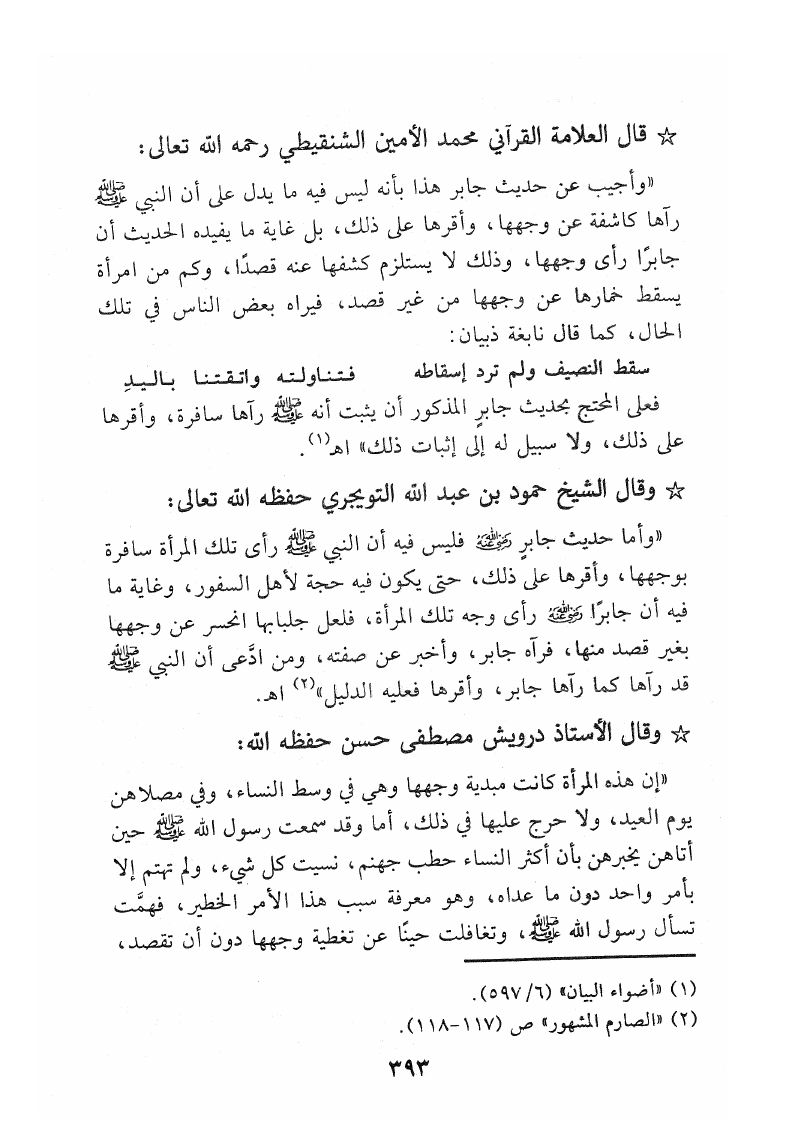 ☆ قال العلامة القرآني محمد الأمين الشنقيطي رحمه الله تعالى:
«وأجيب عن حديث جابر هذا بأنه ليس فيه ما يدل على أن النبي ﷺ
رآها كاشفة عن وجهها، وأقرها على ذلك، بل غاية ما يفيده الحديث أن
جابرًا رأى وجهها، وذلك لا يستلزم كشفها عنه قصدًا، وكم من امرأة
يسقط خمارها عن وجهها من غير قصد، فيراه بعض الناس في تلك
الحال، كما قال نابغة ذبيان:
سقط النصيف ولم ترد إسقاطه فتناولته واتقتنا باليدِ
فعلى المحتج بحديث جابرٍ المذكور أن يثبت أنه ﷺ رآها سافرة، وأقرها
على ذلك، ولا سبيل له إلى إثبات ذلك» اهـ(١).
☆ وقال الشيخ حمود بن عبد الله التويجري حفظه الله تعالى:
«وأما حديث جابرٍ رضي الله عنه فليس فيه أن النبي ﷺ رأى تلك المرأة سافرة
بوجهها، وأقرها على ذلك، حتى يكون فيه حجة لأهل السفور، وغاية ما
فيه أن جابرًا رضي الله عنه رأى وجه تلك المرأة، فلعل جلبابها انحسر عن وجهها
بغير قصد منها، فرآه جابر، وأخبر عن صفته، ومن ادَّعى أن النبي ﷺ
قد رآها كما رآها جابر، وأقرها فعليه الدليل»(٢) اهـ.
☆ وقال الأستاذ درويش مصطفى حسن حفظه الله:
«إن هذه المرأة كانت مبدية وجهها وهي في وسط النساء، وفي مصلاهن
يوم العيد، ولا حرج عليها في ذلك، أما وقد سمعت رسول الله ﷺ حين
أتاهن يخبرهن بأن أكثر النساء حطب جهنم، نسيت كل شيء، ولم تهتم إلا
بأمر واحد دون ما عداه، وهو معرفة سبب هذا الأمر الخطير، فهمَّت
تسأل رسول الله ﷺ، وتغافلت حينًا عن تغطية وجهها دون أن تقصد،
(١) «أضواء البيان» (٥٩٧/٦).
(٢) «الصارم المشهور» ص (١١٧-١١٨).
٣٩٣